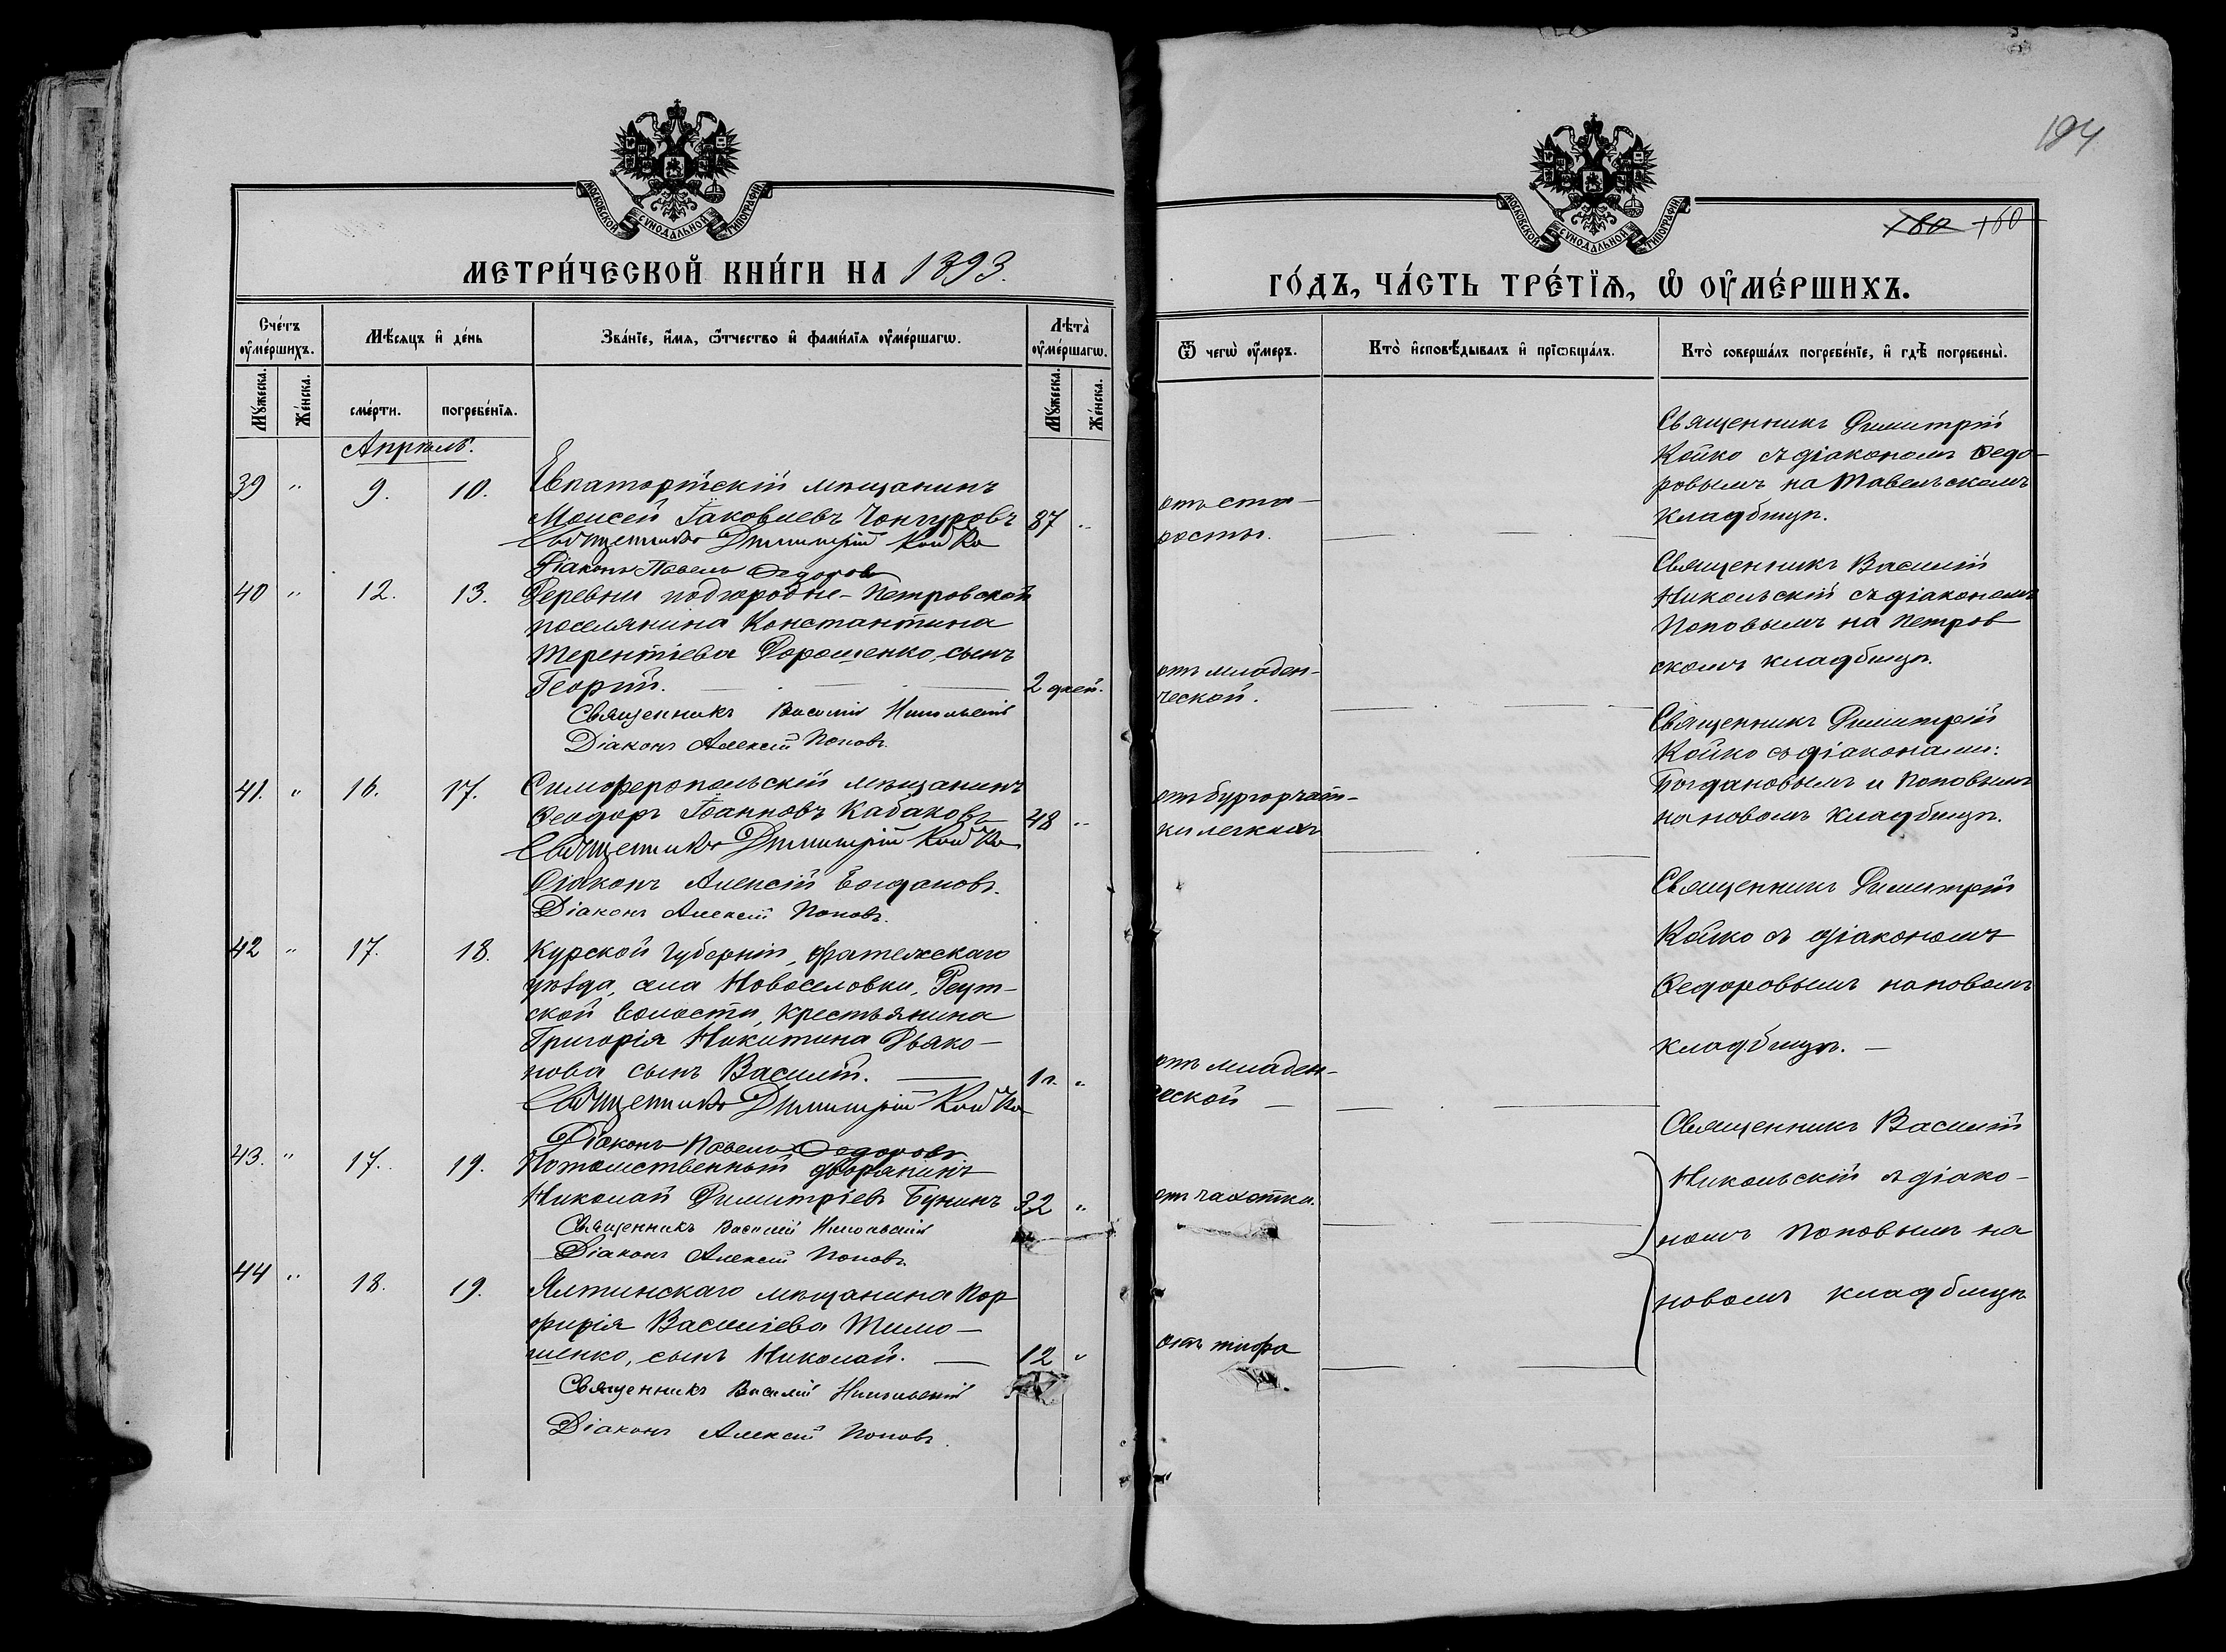 МОСКОВСКОЙ СѴНОДАЛЬНОЙ ТИПОГРАФІИ
МЕТРИ́ЧЕСКОЙ КНИ́ГИ НА 1893.
Сче́тъ ᲂу҆ме́ршихъ.
Мѣ́сяцъ и҆ де́нь
Зва́нїе, и҆́мѧ, ѻ҆́тчество и҆ фами́лїѧ ᲂу҆ме́ршагѡ.
Лѣта̀ ᲂу҆ме́ршагѡ.
Мꙋ́жеска.
Же́нска.
сме́рти.
погребе́нїѧ.
Мꙋ́жеска.
Же́нска.
Апрѣль.
39 " 9. 10. Евпаторійскій мѣщанинъ
Моисей Іаковлевъ Чонгуровъ 87 "
Священникъ Димитрій Койко
Діаконъ Павелъ Ѳедоровъ
40 " 12. 13. Деревни подгородне-Петровской
поселянина Константина
Терентіева Дорошенко, сынъ
Георгій. 2 дней.
Священникъ Василій Никольскій
Діаконъ Алексій Поповъ.
41. " 16. 17. Симферопольскій мѣщанинъ
Ѳеодоръ Іоанновъ Кабаковъ 48 "
Священникъ Димитрій Койко
Діаконъ Алексій Богдановъ.
Діаконъ Алексій Поповъ.
42 " 17. 18. Курской губерніи, Фатежскаго
уѣзда, села Новоселовки, Реут-
ской волости, крестьянина
Григорія Никитина Дьяко-
нова сынъ Василій. 1 г. "
Священникъ Димитрій Койко
Діаконъ Павелъ Ѳедоровъ.
43. " 17. 19. Потомственный дворянинъ
Николай Димитріевъ Бунинъ 32 "
Священникъ Василій Никольскій
Діаконъ Алексій Поповъ.
44 " 18. 19. Ялтинскаго мѣщанина Пор
фирія Васильева Тимо-
шенко, сынъ Николай. 12 "
Священникъ Василій Никольскій
Діаконъ Алексій Поповъ.
194
МОСКОВСКОЙ СѴНОДАЛЬНОЙ ТИПОГРАФІИ
180 160
ГО́ДЪ, ЧА́СТЬ ТРЕ́ТЇѦ, Ѡ҆ ОУ҆МЕ́РШИХЪ.
Ѿ чегѡ̀ ᲂу҆́меръ.
Кто̀ и҆сповѣ́дывалъ и҆ прїѡбща́лъ.
Кто̀ соверша́лъ погребе́нїе, и҆ гдѣ̀ погребены̀.
отъ ста-
рости.
Священникъ Димитрій
Койко съ діакономъ Ѳедо-
ровымъ на Тавельскомъ
кладбищѣ.
отъ младен-
ческой.
Священникъ Василій
Никольскій съ діакономъ
Поповымъ на Петров
скомъ кладбищѣ.
отъ бугорчат-
ки легкихъ
Священникъ Димитрій
Койко съ діаконами:
Богдановымъ и Поповымъ
на новомъ кладбищѣ.
отъ младен-
ческой
Священникъ Димитрій
Койко съ діакономъ
Ѳедоровымъ на новомъ
кладбищѣ.
отъ чахотки.
отъ тифа
Священникъ Василій
Никольскій съ діако-
номъ Поповымъ на
новомъ кладбищѣ